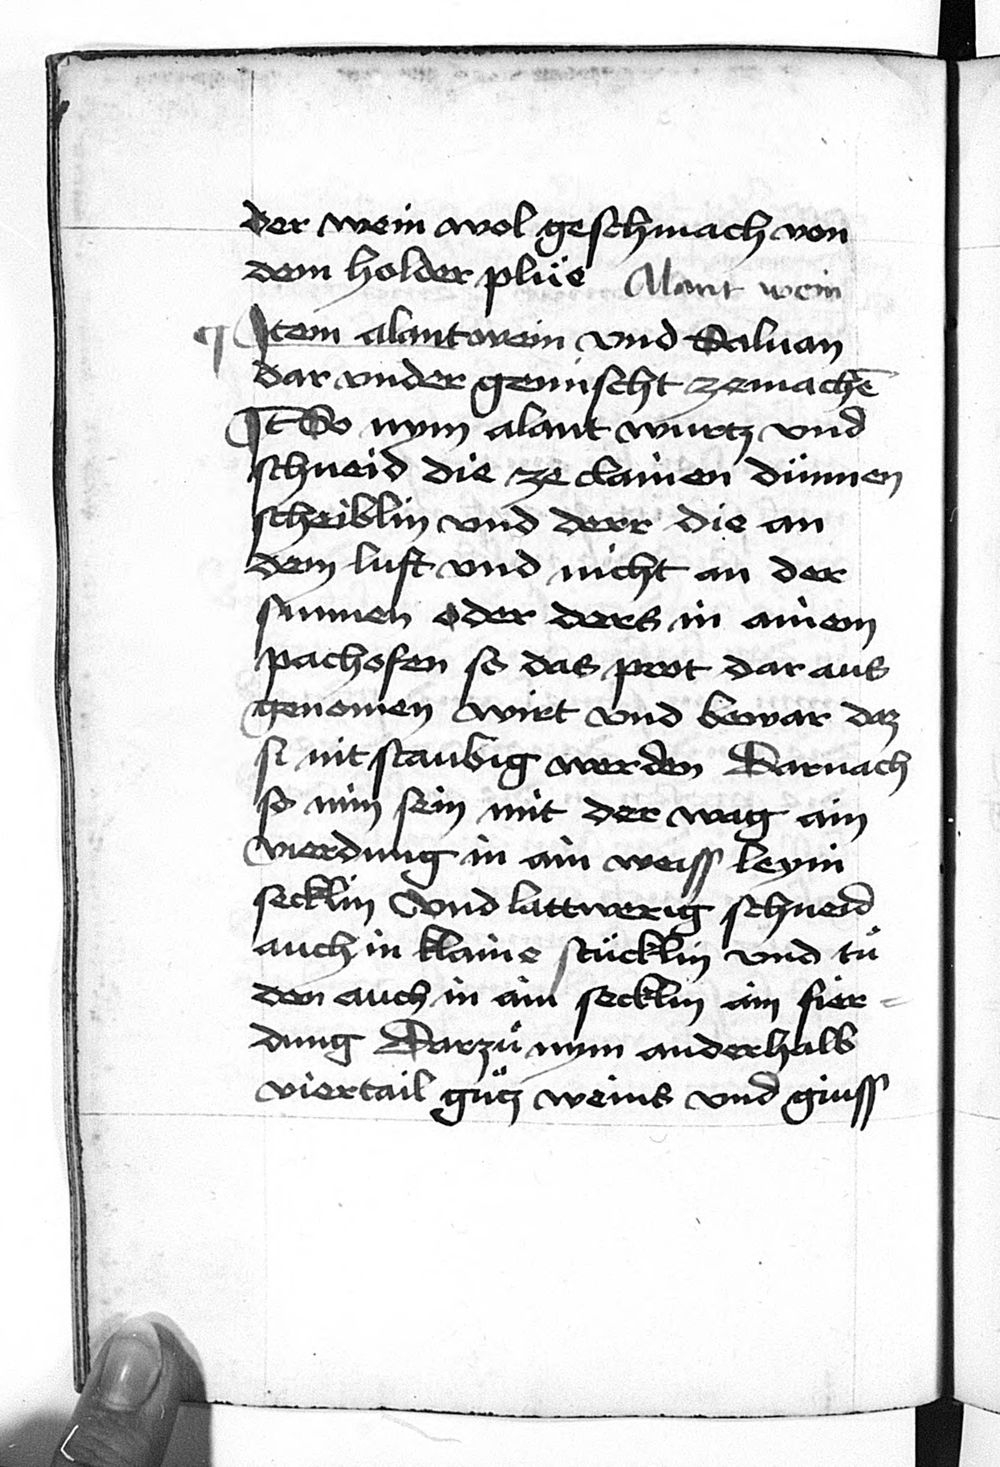 der wein wol geschmach von
dem holder plüe Alant wein
¶ Item alantwein vnd Saluan
dar vnder gemischt zemachē
It So nym alant wurtz vnd
schneid die ze clainen dünnen
scheiblin vnd derr die an
dem luft vnd nicht an der
sunnen oder ders in ainem
pachofen so das prot dar aus
genomen wirt vnd bewar daz
si nit staubig werden Darnach
so nim sein mit der wag ain
vierdung in ain weiss leyin
secklin Vnd lattwerig schneid
auch in klaine stücklin vnd tů
den auch in ain secklin ain fier=
dung Darzů nym anderhalb
viertail gůtz weins vnd giuss